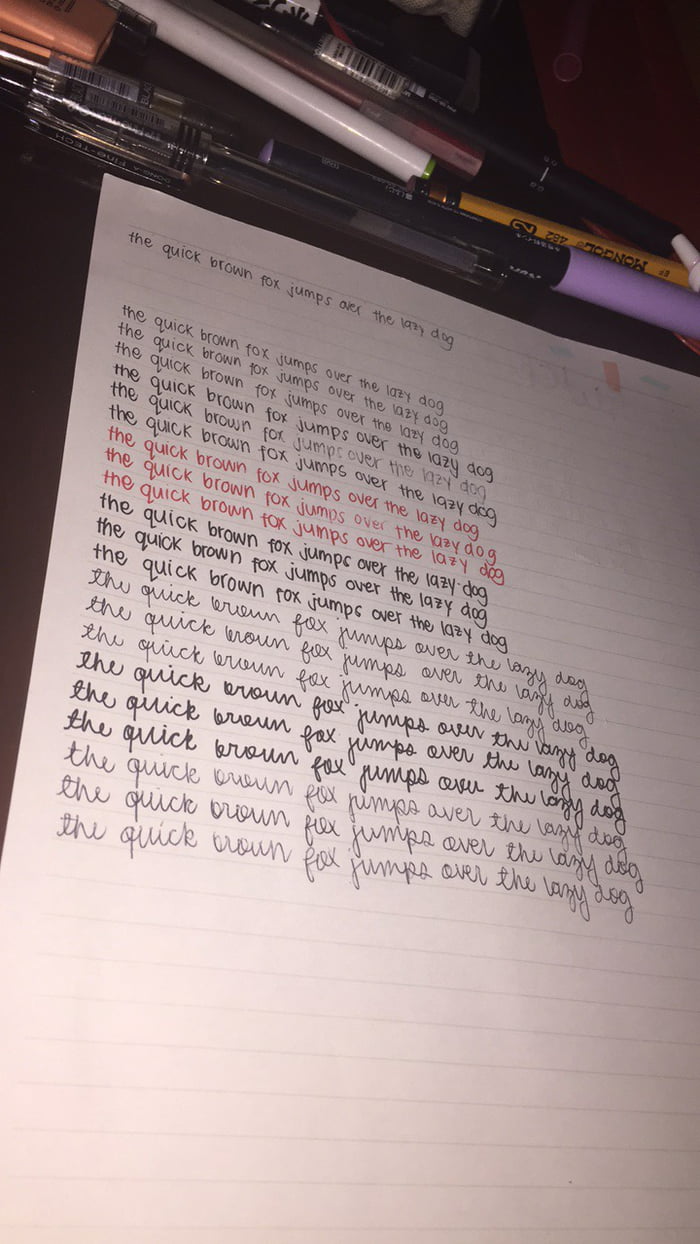 DONG-A Fine-TECH
MONGOL 482 2
EF
the quick brown fox jumps over the lazy dog
the quick brown fox jumps over the lazy dog
the quick brown fox jumps over the lazy dog
the quick brown fox jumps over the lazy dog
the quick brown fox jumps over the lazy dog
the quick brown fox jumps over the lazy dog
the quick brown fox jumps over the lazy dog
the quick brown fox jumps over the lazy dog
the quick brown fox jumps over the lazy dog
the quick brown fox jumps over the lazy dog
the quick brown fox jumps over the lazy dog
the quick brown fox jumps over the lazy dog
the quick brown fox jumps over the lazy dog
the quick brown fox jumps over the lazy dog
the quick brown fox jumps over the lazy dog
the quick brown fox jumps over the lazy dog
the quick brown fox jumps over the lazy dog
the quick brown fox jumps over the lazy dog
the quick brown fox jumps over the lazy dog
the quick brown fox jumps over the lazy dog
the quick brown fox jumps over the lazy dog
the quick brown fox jumps over the lazy dog